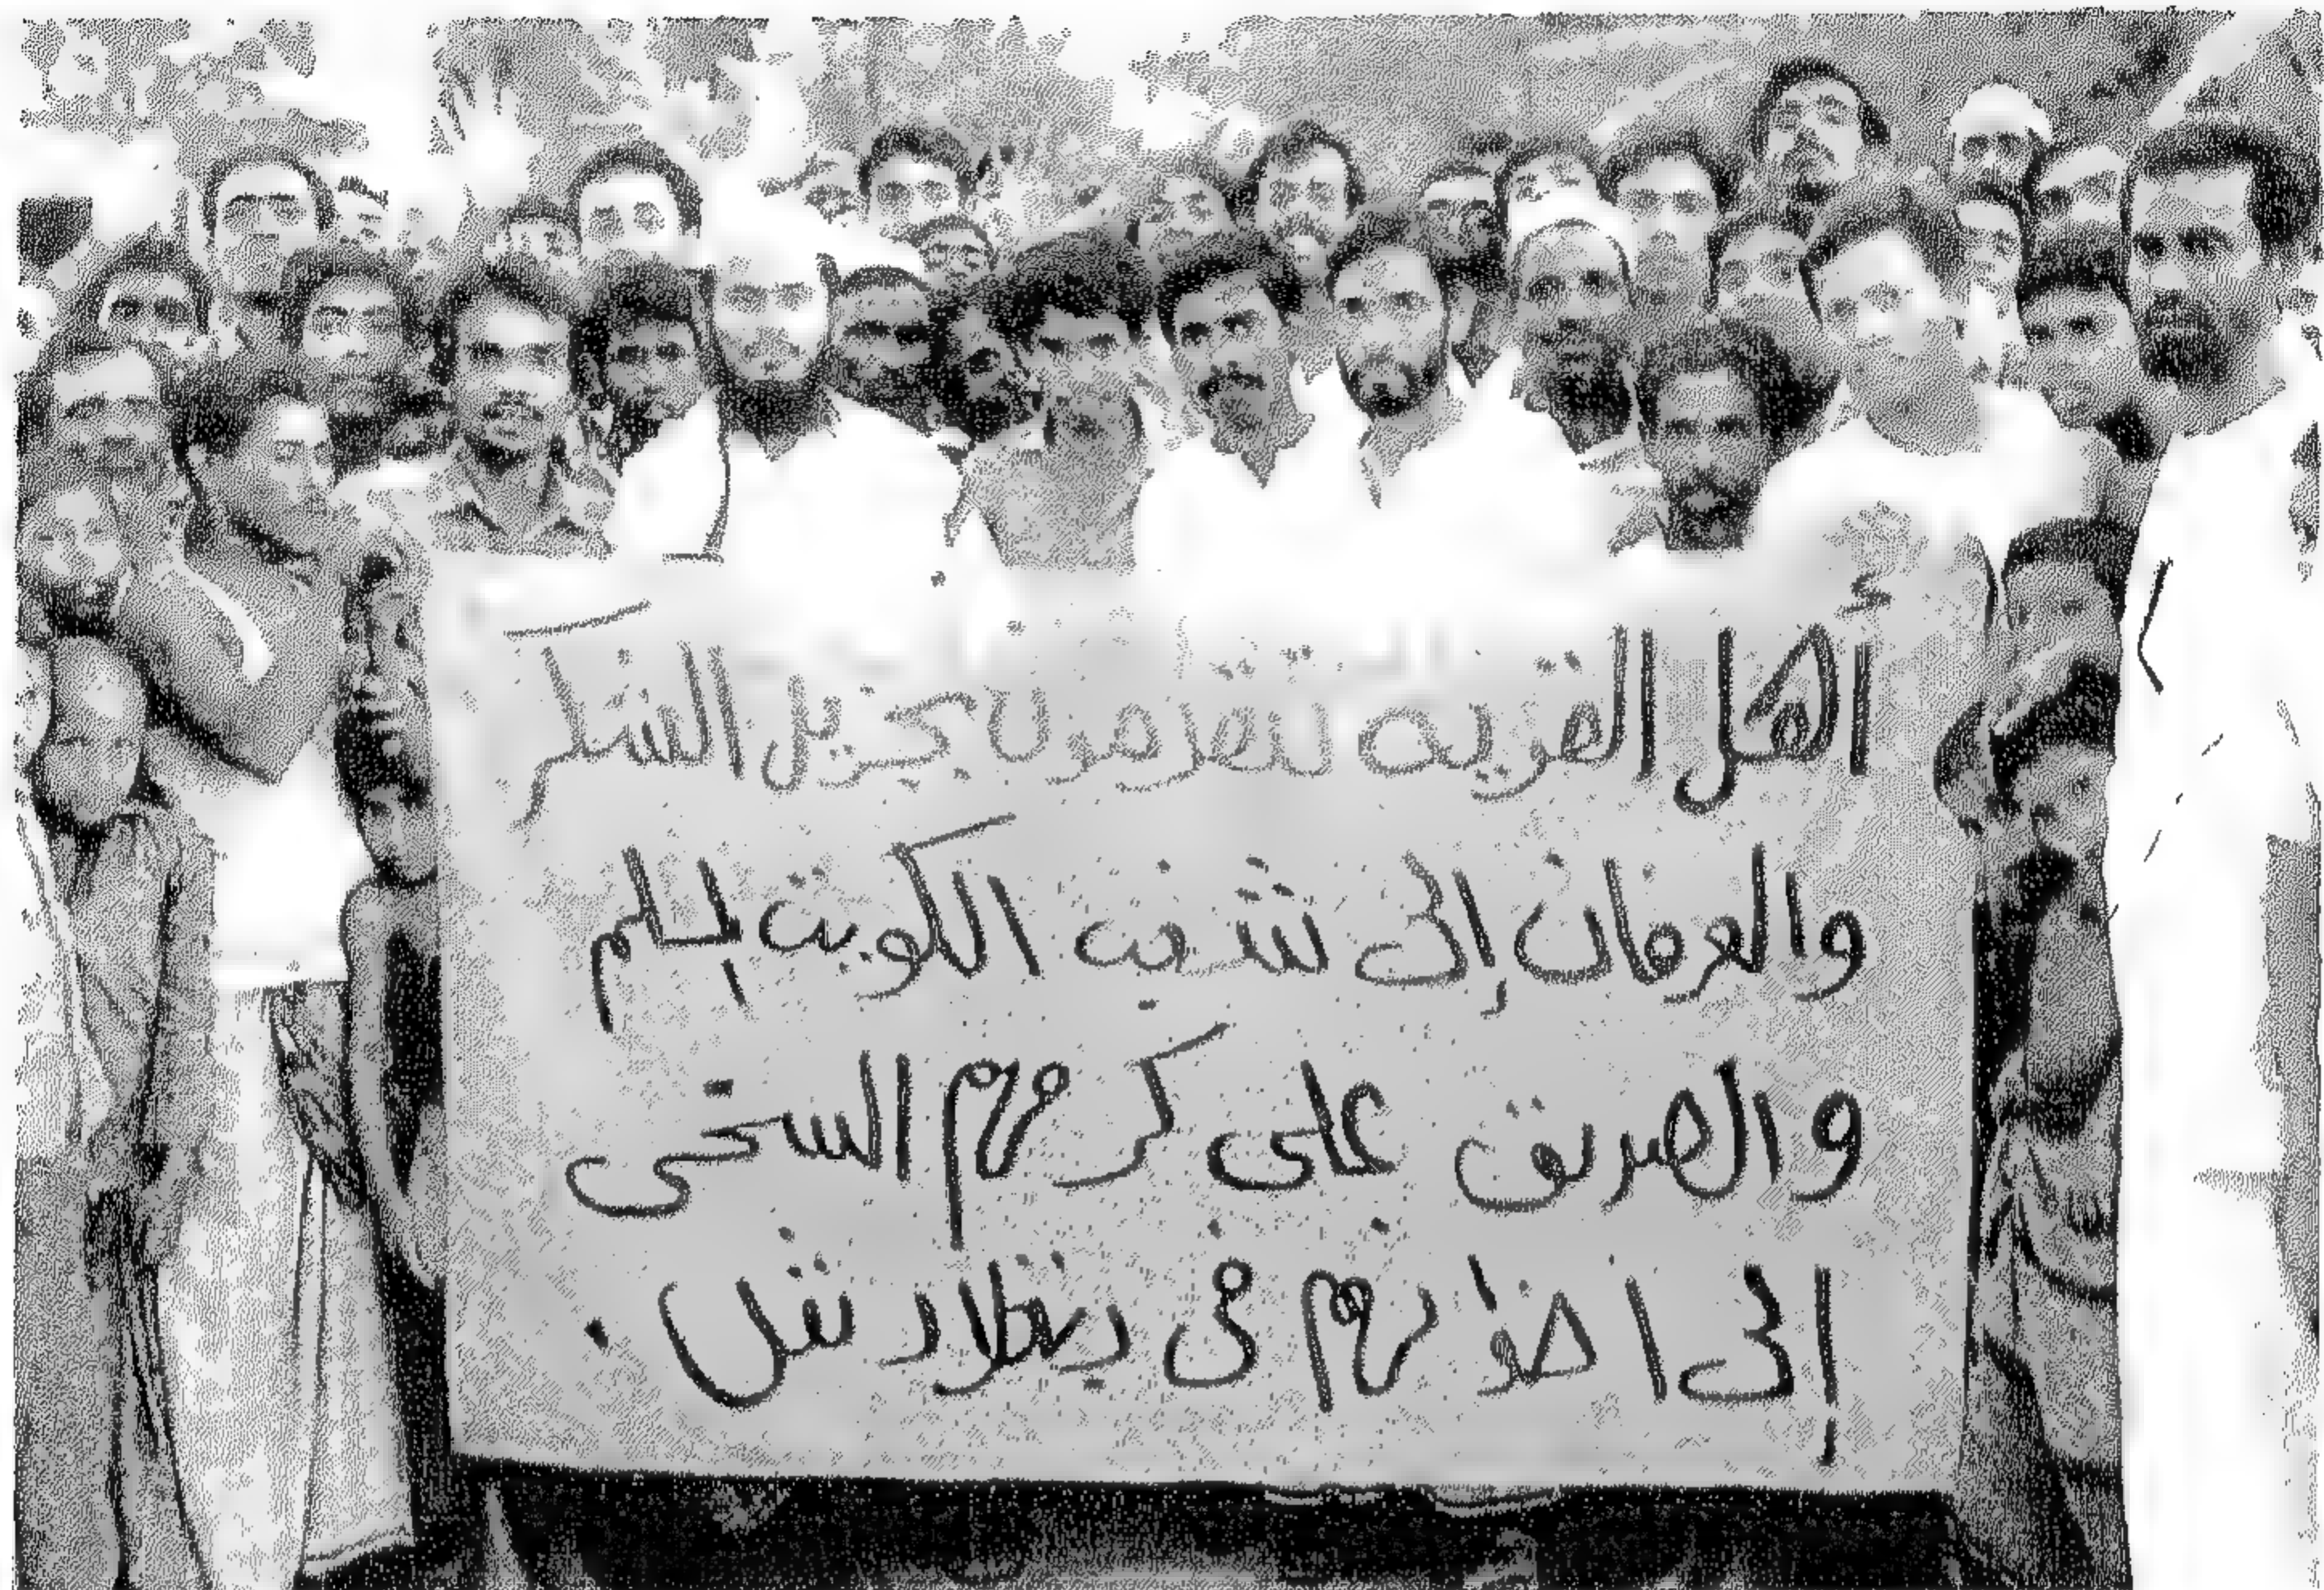 أهل القرية يتقدمون بجزيل الشكر
والعرفان إلى شعب الكويت المسلم
والصديق على كرمهم السخى
إلى اخوانهم فى بنغلاديش .